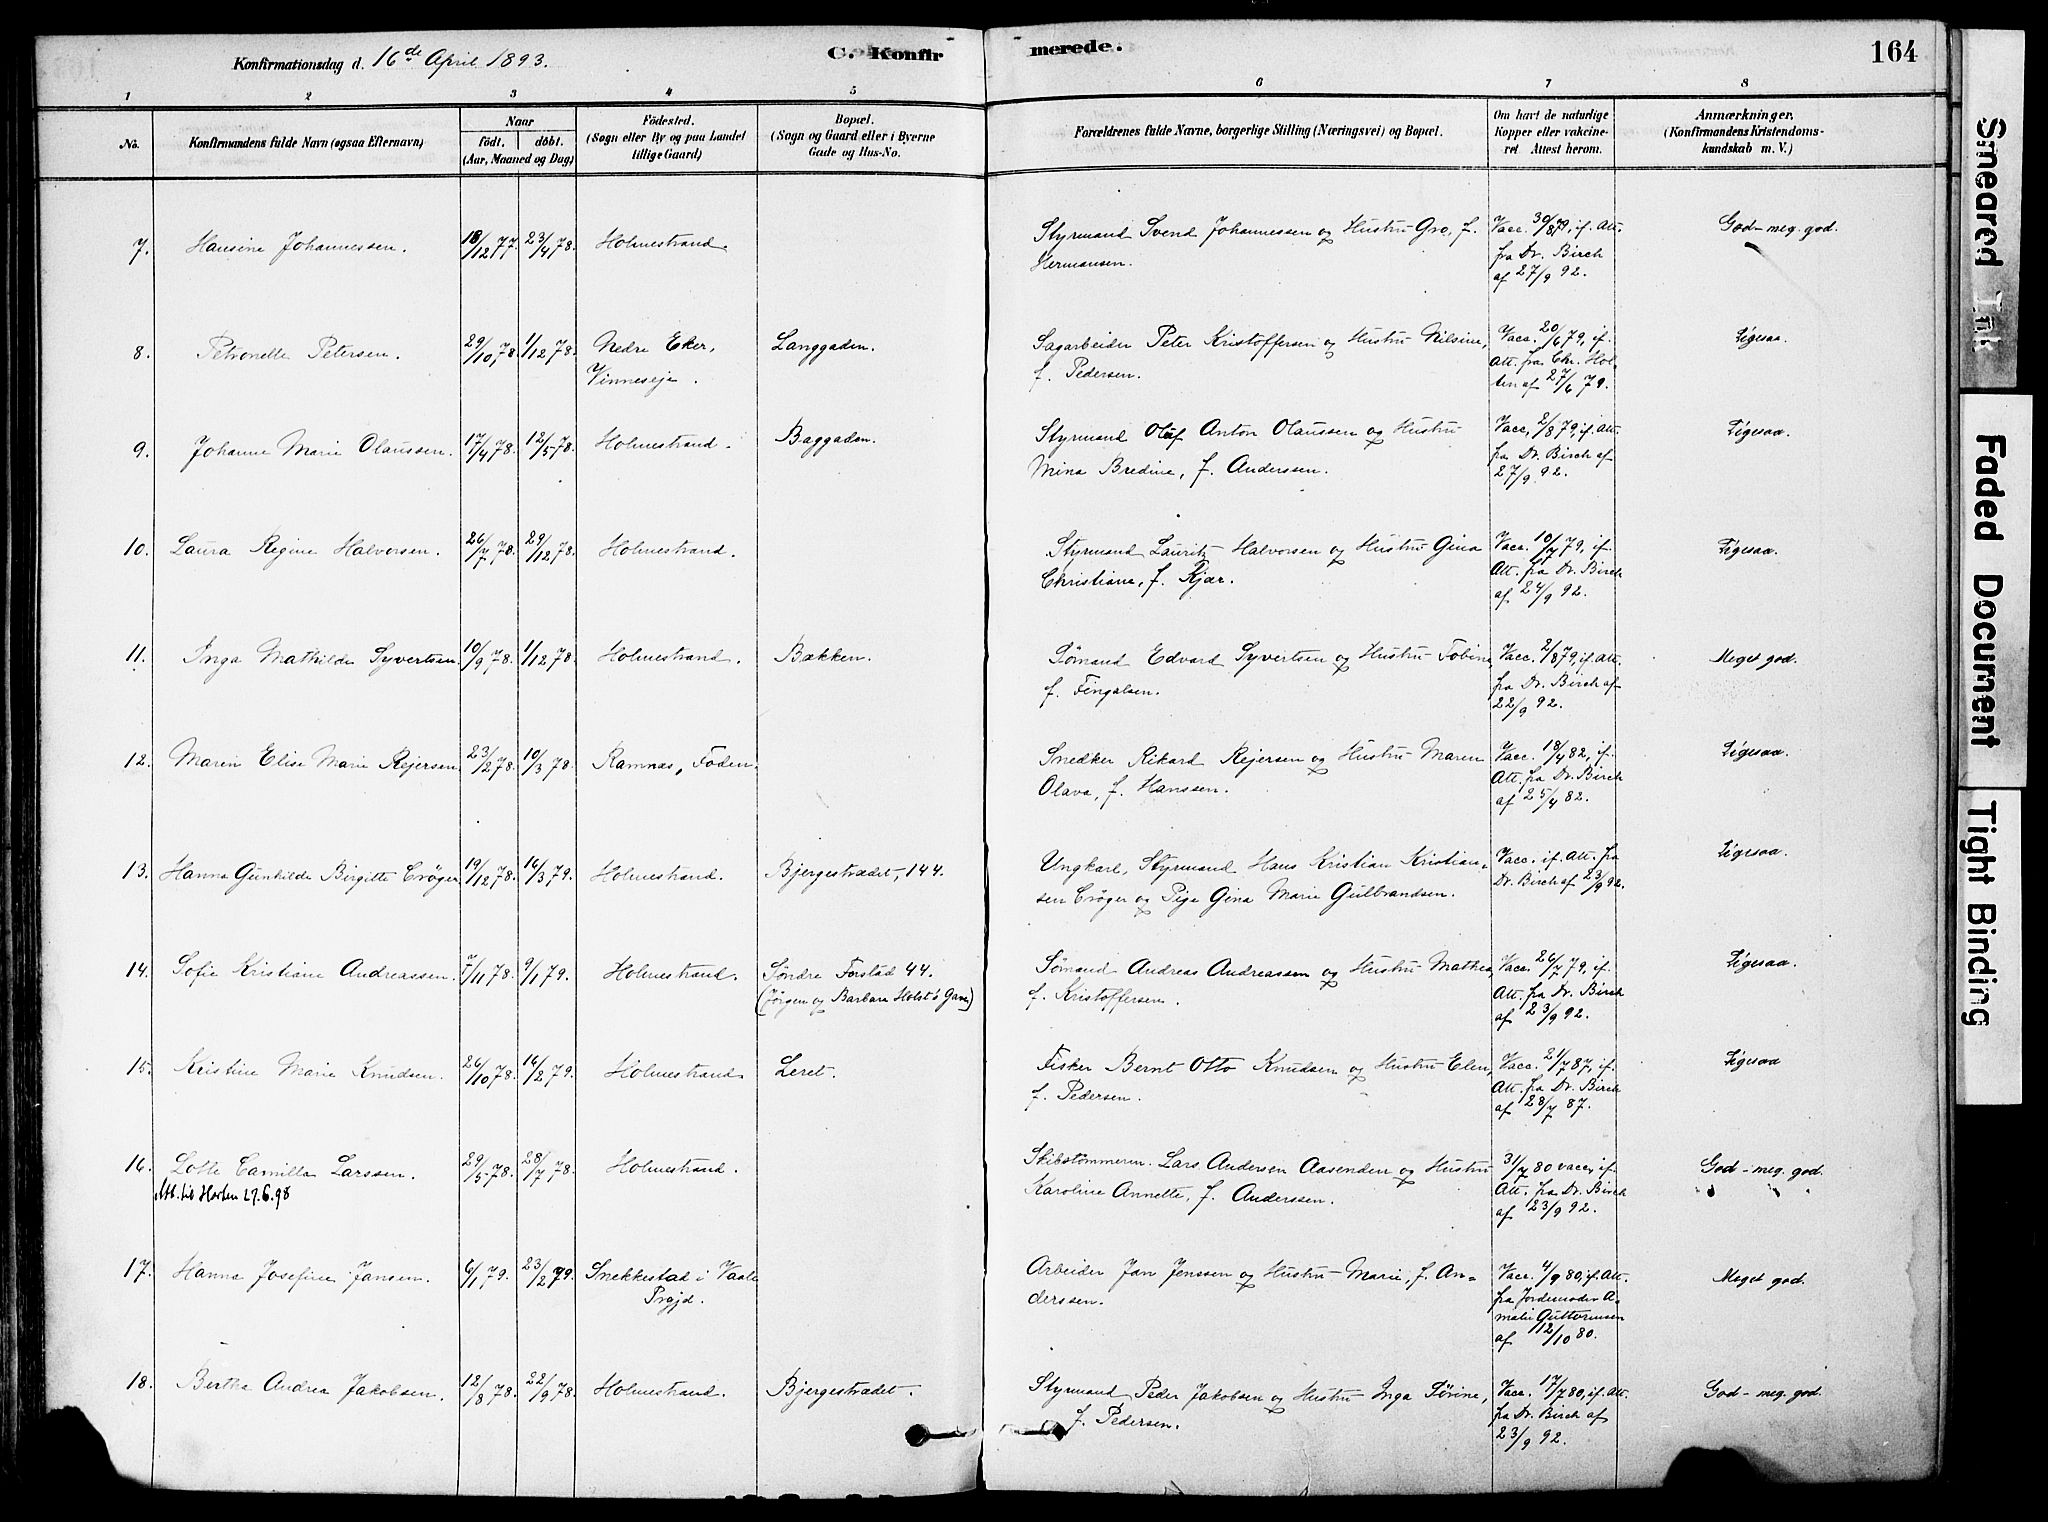 Konfirmationsdag d. 16de April 1893.
C. Konfirmerede.
164
1 2 3 4 5 6 7 8
No.
Konfirmandens fulde Navn (ogsaa Efternavn)
Naar
födt. döbt.
(Aar, Maaned og Dag)
Födested.
(Sogn eller By og paa Landet
tillige Gaard)
Bopæl.
(Sogn og Gaard eller i Byerne
Gade og Hus-No.
Forældrenes fulde Navne, borgerlige Stilling (Næringsvei) og Bopæl.
Om havt de naturlige
Kopper eller vakcine-
ret. Attest herom.
Anmærkninger.
(Konfirmandens Kristendoms-
kundskab m. V.)
7. Hansine Johannessen. 18/12 77 23/4 78. Holmestrand.
Styrmand Svend Johannessen og Hustru Gro, f.
Hermansen.
Vacc. 30/8 79, if. Att.
fra Dr. Birch
af 27/9 92.
God - meg. god.
8. Petronelle Petersen. 29/10 78. 1/12 78. Nedre Eker,
Vinneseje.
Langgaden.
Sagarbeider Peter Kristoffersen og Hustru Nilsine,
f. Pedersen.
Vacc. 20/6 79, if.
Att. fra Chr. Hol-
ten af 27/6 79.
Ligesaa.
9. Johanne Marie Olaussen. 17/4 78. 12/5 78. Holmestrand. Baggaden.
Styrmand Olaf Anton Olaussen og Hustru
Mina Bredine, f. Anderssen.
Vacc. 2/8 79, if. Att.
fra Dr. Birch af
27/9 92.
Ligesaa.
10. Laura Regine Halvorsen. 26/7 78. 29/12 78. Holmestrand.
Styrmand Lauritz Halvorsen og Hustru Gina
Christiane, f. Kjær.
Vacc. 10/7 79, if.
Att. fra Dr. Birch
af 24/9 92.
Ligesaa.
11. Inga Mathilde Syvertsen. 10/9 78. 1/12 78. Holmestrand. Bækken.
Sømand Edvard Syvertsen og Hustru Tobine,
f. Fingalsen.
Vacc. 2/8 79, if. Att.
fra Dr. Birch af
22/9 92.
Meget god.
12. Maren Elise Marie Rejersen 23/2 78. 10/3 78. Ramnæs, Foden.
Snedker Rikard Rejersen og Hustru Maren
Olava, f. Hanssen.
Vacc. 18/4 82, if.
Att. fra Dr. Birch
af 25/4 82.
Ligesaa.
13. Hanna Gunhilde Birgitte Crøger 19/12 78. 16/3 79. Holmestrand. Bjergestrædet, 144.
Ungkarl, Styrmand Hans Kristian Kristian-
sen Crøger og Pige Gina Marie Gulbrandsen.
Vacc. if. Att. fra
Dr. Birch af 23/9 92.
Ligesaa.
14. Sofie Kristiane Andreassen. 7/11 78. 9/1 79. Holmestrand. Søndre Forstad 44.
(Jørgen og Barbara Holst's Gave)
Sømand Andreas Andreassen og Hustru Mathea,
f. Kristoffersen.
Vacc. 26/7 79, if.
Att. fra Dr. Birch
af 23/9 92.
Ligesaa.
15. Kristine Marie Knudsen. 26/10 78. 16/2 79. Holmestrand Leret.
Fisker Bernt Otto Knudsen og Hustru Elen,
f. Pedersen.
Vacc. 21/7 87, if.
Att. fra Dr. Birch
af 28/7 87.
Ligesaa
16. Lotte Camilla Larssen. 29/5 78. 28/7 78. Holmestrand.
Att. til Horten 27.6.98
Skibstømmerm. Lars Andersen Aasenden og Hustru
Karoline Annette, f. Anderssen.
31/7 80 vacc., if.
Att. fra Dr. Birch
af 23/9 92.
God - meg. god.
17. Hanna Josefine Jansen. 6/1 79. 23/2 79. Snekkestad i Vaale
Prgjd.
Arbeider Jan Jenssen og Hustru Marie, f. An-
derssen.
Vacc. 4/9 80, if. Att.
fra Jordemoder A-
malie Guttormsen
af 12/10 80.
Meget god.
18. Bertha Andrea Jakobsen. 12/8 78. 22/9 78. Holmestrand. Bjergestrædet.
Styrmand Peder Jakobsen og Hustru Inga Sørine,
f. Pedersen.
Vacc. 17/7 80, if. Att.
fra Dr. Birch af
23/9 92.
God - meg. god.
Smeared Ink
Faded Document
Tight Binding